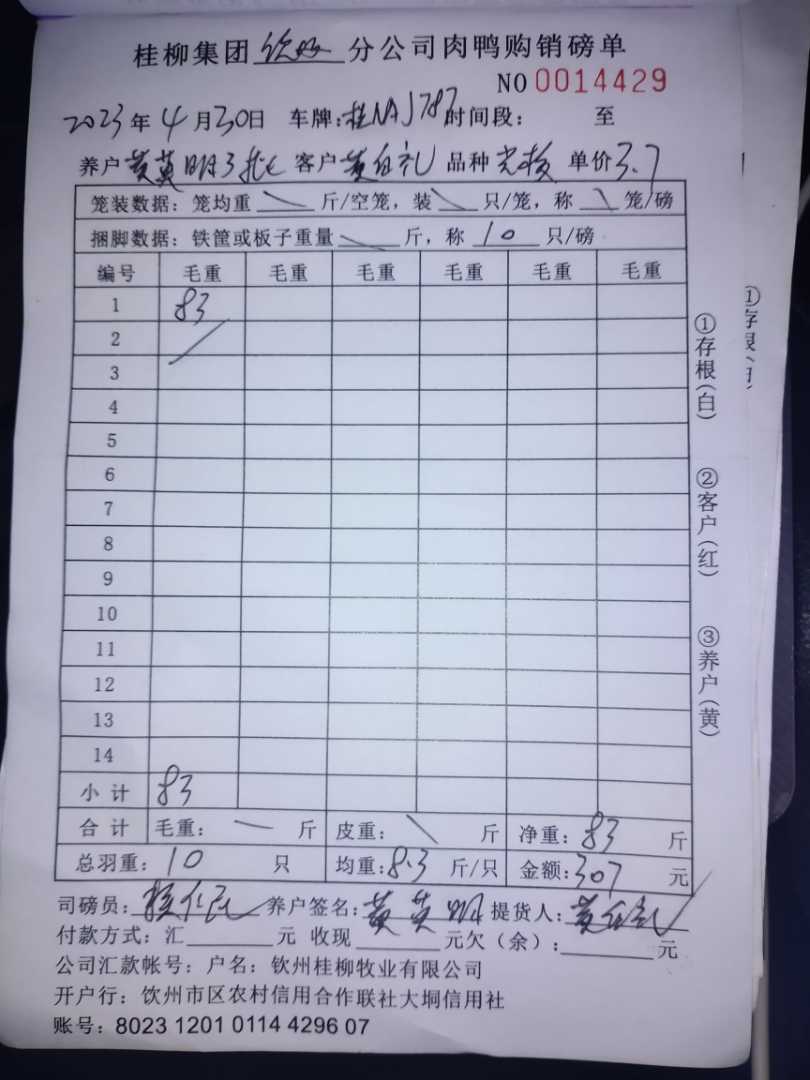 桂柳集团 钦州 分公司肉鸭购销磅单
NO 0014429
2023年4月30日 车牌:桂NAJ787 时间段: 至
养户 黄英明3批 客户 黄 礼 品种 单价 3.7
笼装数据: 笼均重 \ 斤/空笼, 装 \ 只/笼, 称 \ 笼/磅
捆脚数据: 铁筐或板子重量 \ 斤, 称 10 只/磅
编号 毛重 毛重 毛重 毛重 毛重 毛重
1 83
2 /
3
4
5
6
7
8
9
10
11
12
13
14
小计 83
合计 毛重: — 斤 皮重: \ 斤 净重: 83 斤
总羽重: 10 只 均重: 8.3 斤/只 金额: 307 元
司磅员: 养户签名: 黄英明 提货人: 黄 礼
付款方式: 汇 元 收现 元欠(余): 元
公司汇款帐号: 户名: 钦州桂柳牧业有限公司
开户行: 饮州市区农村信用合作联社大垌信用社
账号: 8023 1201 0114 4296 07
①存根(白) ②客户(红) ③养户(黄)
①存根(白)